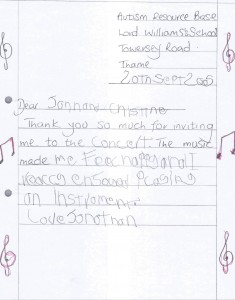 Autism Resource Base
Lord Williams's School
Towersey Road
Thame
20th Sept 2005
Dear Jonnane Christine
Thank you so much for inviting
me to the Concert. The music
made me Feel happy and I
reaccy enjoyed Pcasing
an Instrument
Love Jonathan